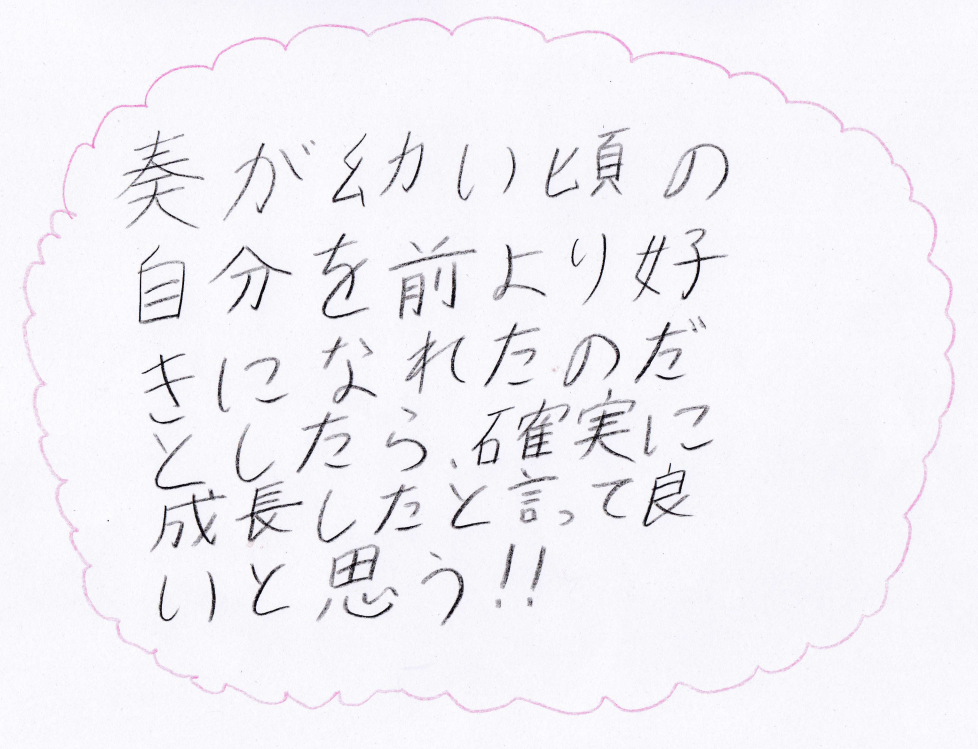 奏が幼い頃の
自分を前より好
きになれたのだ
としたら、確実に
成長したと言って良
いと思う!!